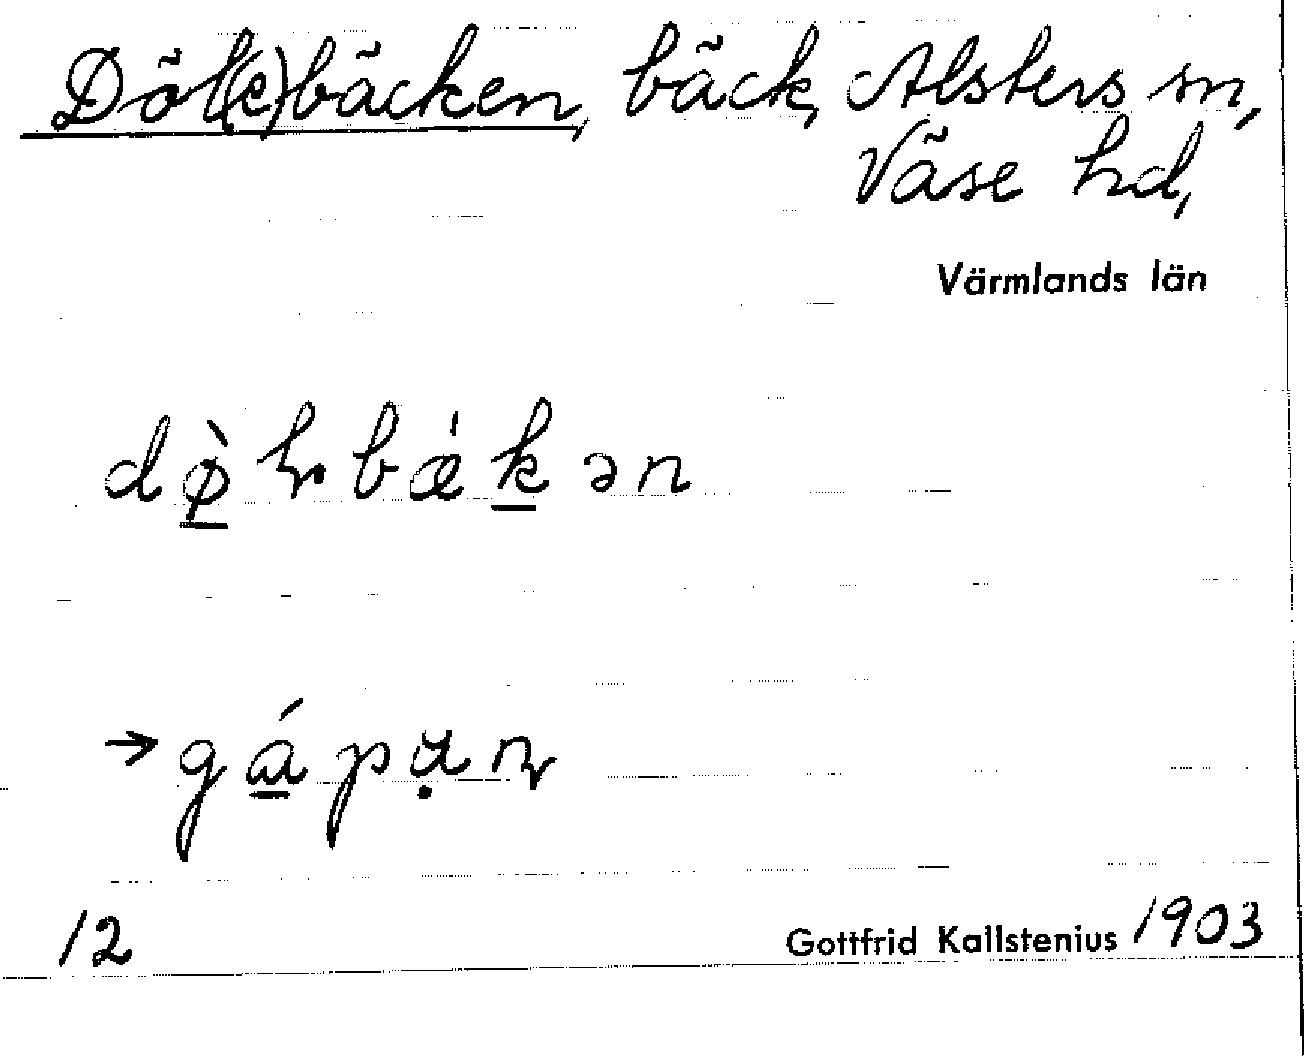 Döl(e)bäcken, bäck, Alsters sn,
Väse hd,
Värmlands län
→
12 Gottfrid Kallstenius 1903